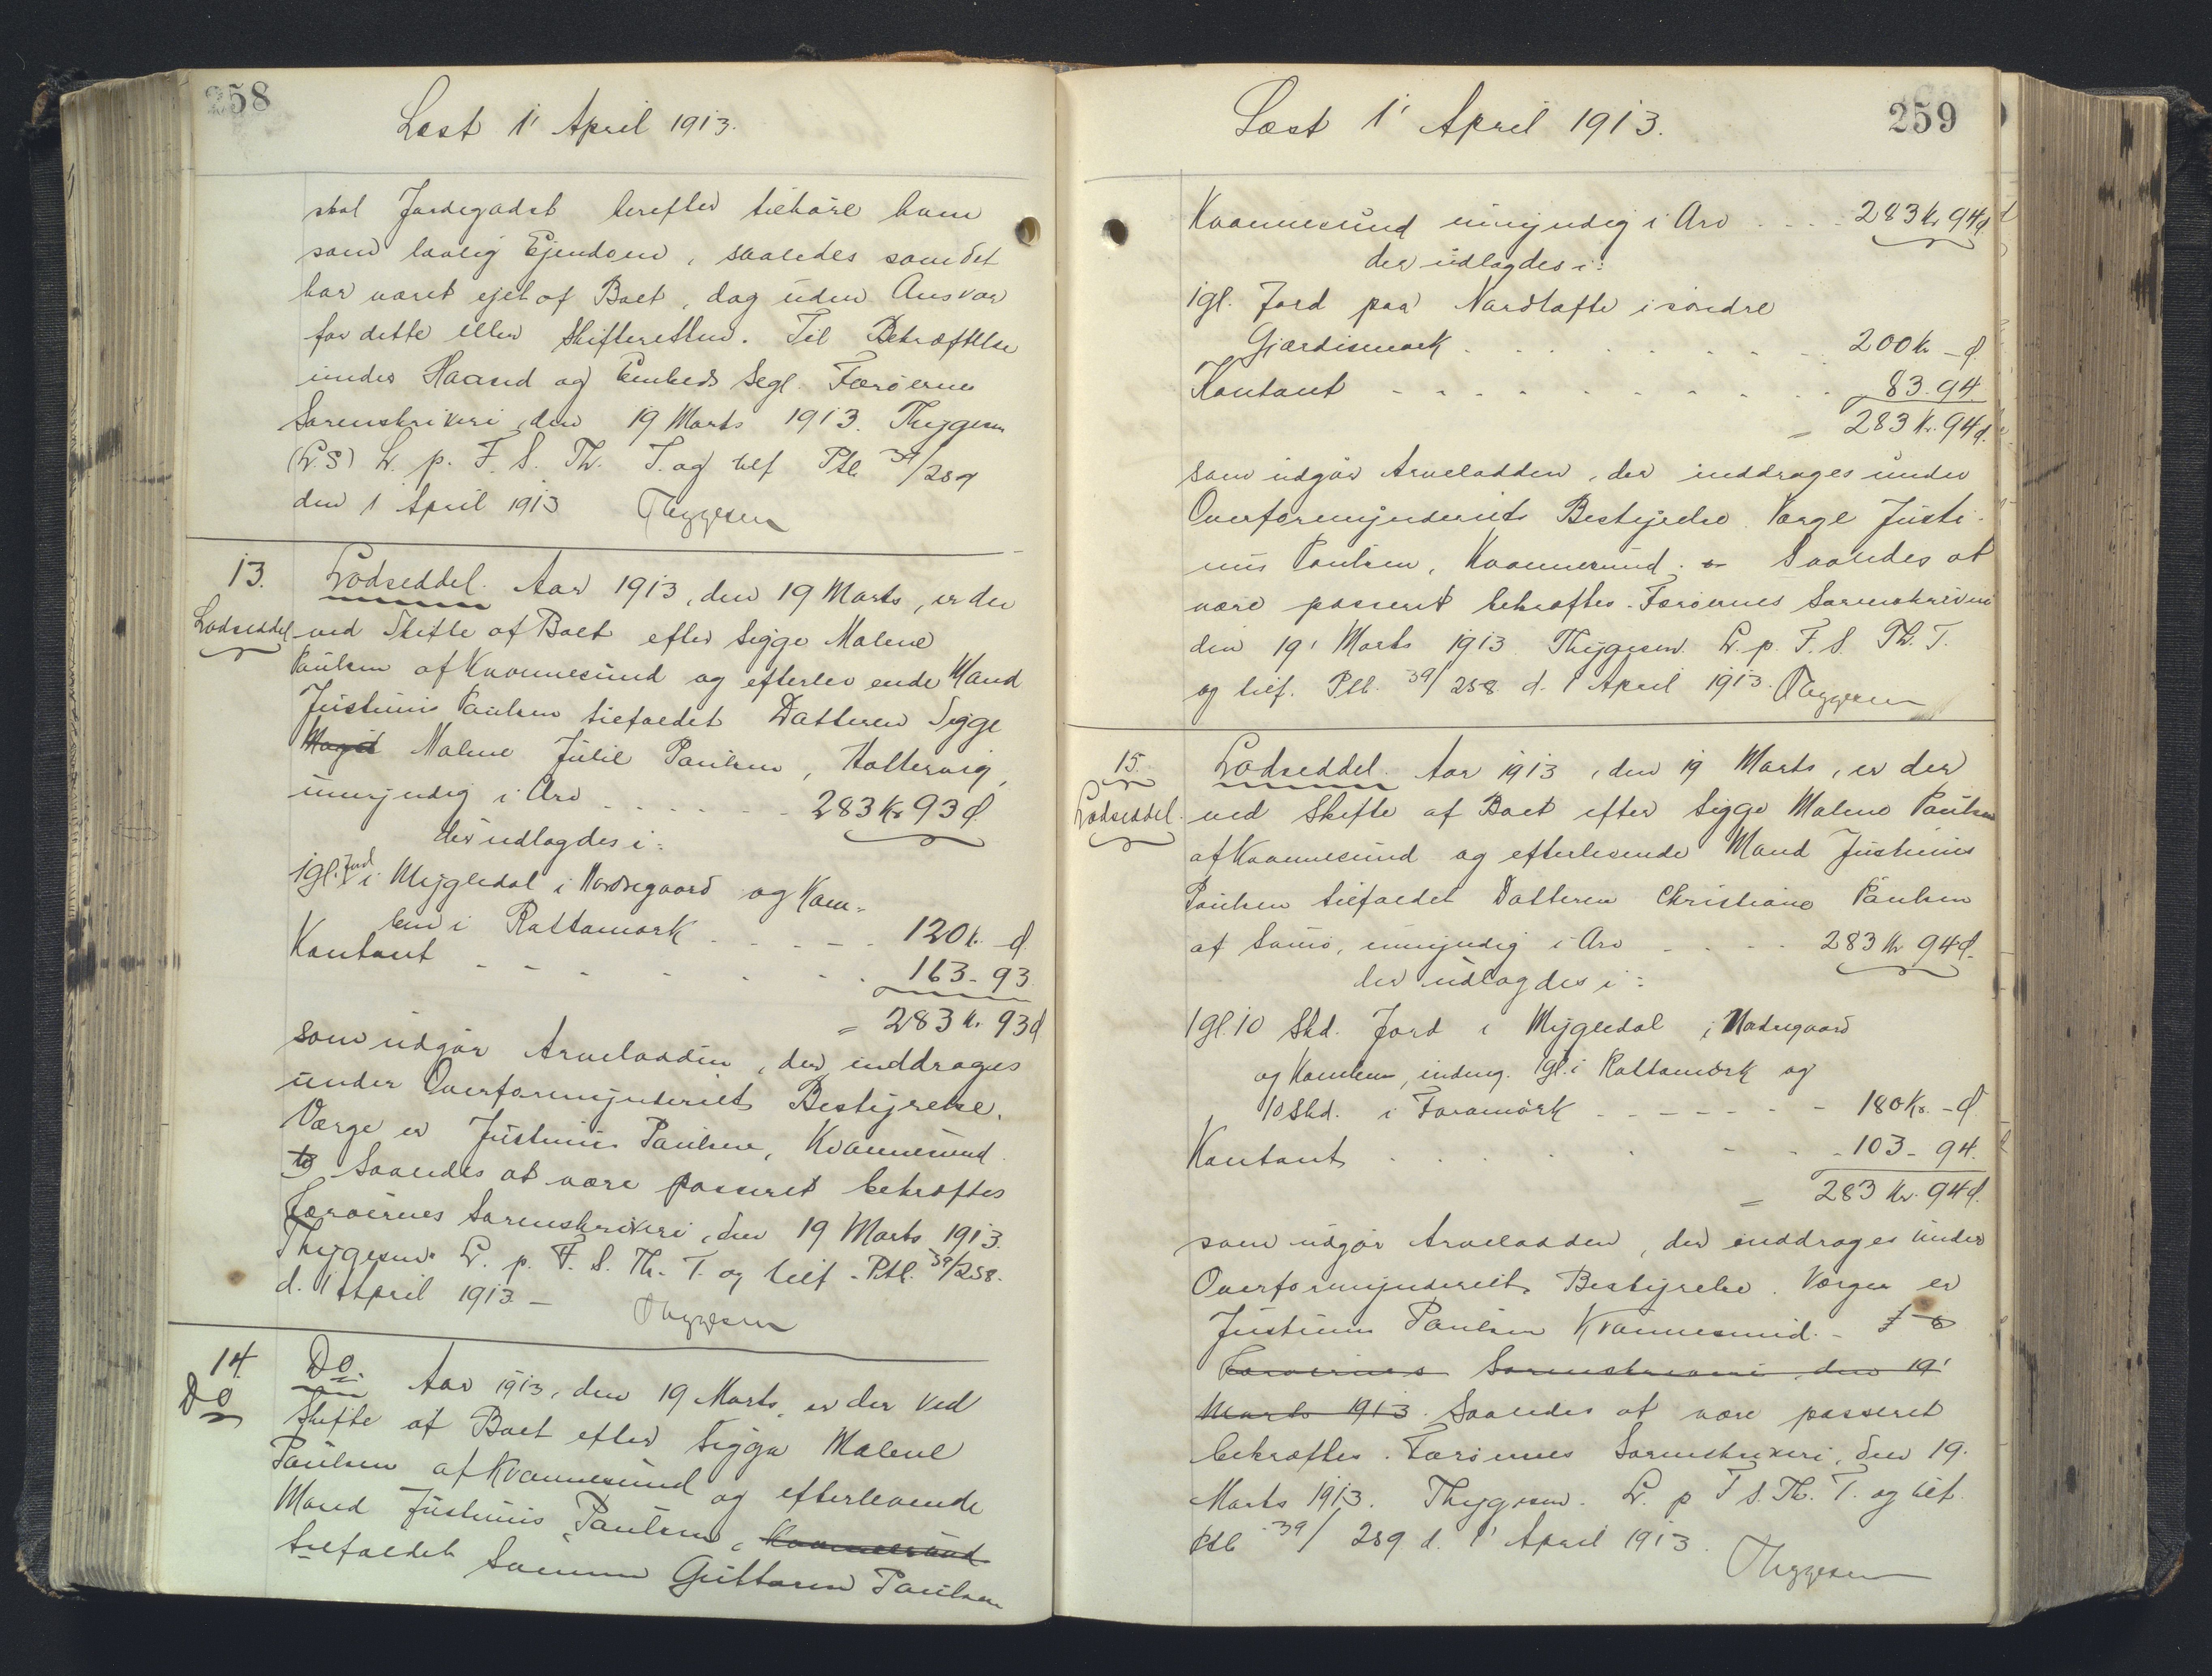 258
Læst 1' April 1913.
skal Jordegodset herefter tilhøre ham
som lovlig Ejendom, saaledes som det
har været ejet af Boet, dog uden Ansvar
for dette eller Skifteretten. Til Bekræftelse
under Haand og Embeds Segl. Færøernes
Sorenskriveri, den 19 Marts 1913. Thygesen
(L.S) L. p. F. S. Th. T. og tilf Ptb. 39/289
den 1 April 1913 Thygesen
13. Lodseddel. Aar 1913, den 19 Marts, er der
Lodseddel ved Skifte af Boet efter Sigge Malene
Paulsen af Kvannesund og efterlevende Mand
Justinus Paulsen tilfaldet Datteren Sigge
Malene Julie Paulsen, Hattervig,
umyndig i Arv 283 Kr 93 Ø.
der udlagdes i:
1 gl. Jord i Mygledal i Nordregaard og Ham-
len i Rattamørk 120 Kr. - Ø
Kontant 163 - 93
= 283 Kr. 93 Ø
som udgør Arvelodden, der inddrages
under Overformynderiets Bestyrelse.
Værge er Justinus Paulsen, Kvannesund.
Saaledes at være passeret bekræftes
Færøernes Sorenskriveri, den 19 Marts 1913.
Thygesen. L. p. F. S. Th. T. og tilf. Ptb. 39/258.
d. 1 April 1913 - Thygesen
14. Do. Aar 1913, den 19 Marts, er der ved
Do Skifte af Boet efter Sigga Malene
Paulsen af Kvannesund og efterlevende
Mand Justinus Paulsen, Kvannesund
tilfaldet Sønnen Guttorm Paulsen
259
Læst 1' April 1913.
Kvannesund umyndig i Arv 283 Kr 94 Ø
der udlagdes i:
1 gl. Jord paa Nordtofte i søndre
Gjærdismørk 200 Kr - Ø.
Kontant 83 - 94
= 283 Kr. 94 Ø.
som udgør Arvelodden, der inddrages under
Overformynderiets Bestyrelse. Værge Justi-
nus Paulsen, Kvannesund. Saaledes at
være passeret bekræftes. Færøernes Sorenskriveri
den 19' Marts 1913. Thygesen. L. p. F. S. Th. T.
og tilf. Ptb. 39/258 d. 1 April 1913. Thygesen
15. Lodseddel. Aar 1913, den 19 Marts, er der
Lodseddel. ved Skifte af Boet efter Sigge Malene Paulsen
af Kvannesund og efterlevende Mand Justinus
Paulsen tilfaldet Datteren Christiane Paulsen
af umyndig i Arv 283 Kr 94 Ø.
der udlagdes i:
1 gl. 10 Skd. Jord i Mygledal i Nordregaard
og Hamlen, indmg. 1 gl. i Rattamørk og
10 Skd. i Foramørk 180 Kr. - Ø
Kontant 103 - 94.
= 283 Kr. 94 Ø.
som udgør Arvelodden, der inddrages under
Overformynderiets Bestyrelse. Værgen er
Justinus Paulsen Kvannesund. -
Færøernes Sorenskriveri, den 19'
Marts 1913. Saaledes at være passeret
bekræftes. Færøernes Sorenskriveri, den 19.
Marts 1913. Thygesen. L. p F S. Th. T. og tilf.
Ptb 39/289 d. 1' April 1913. Thygesen